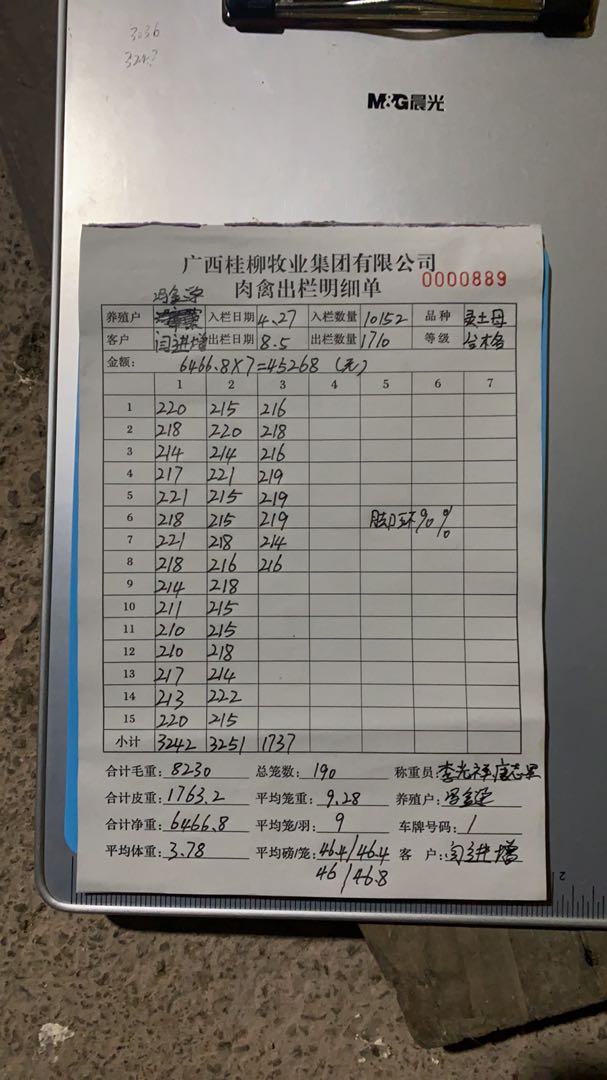 3036
324?
M&G晨光
广西桂柳牧业集团有限公司
肉禽出栏明细单 0000889
冯金荣
养殖户 入栏日期 4.27 入栏数量 10152 品种 灵土母
客户 闫进增 出栏日期 8.5 出栏数量 1710 等级 合格
金额: 6466.8X7=45268 (元)
1 2 3 4 5 6 7
1 220 215 216
2 218 220 218
3 214 214 216
4 217 221 219
5 221 215 219
6 218 215 219 脚环90%
7 221 218 214
8 218 216 216
9 214 218
10 211 215
11 210 215
12 210 218
13 217 214
14 213 222
15 220 215
小计 3242 3251 1737
合计毛重: 8230 总笼数: 190 称重员: 李光祥
合计皮重: 1763.2 平均笼重: 9.28 养殖户: 冯金荣
合计净重: 6466.8 平均笼/羽: 9 车牌号码: 1
平均体重: 3.78 平均磅/笼: 46.4/46.4 客户: 闫进增
46/46.8
2